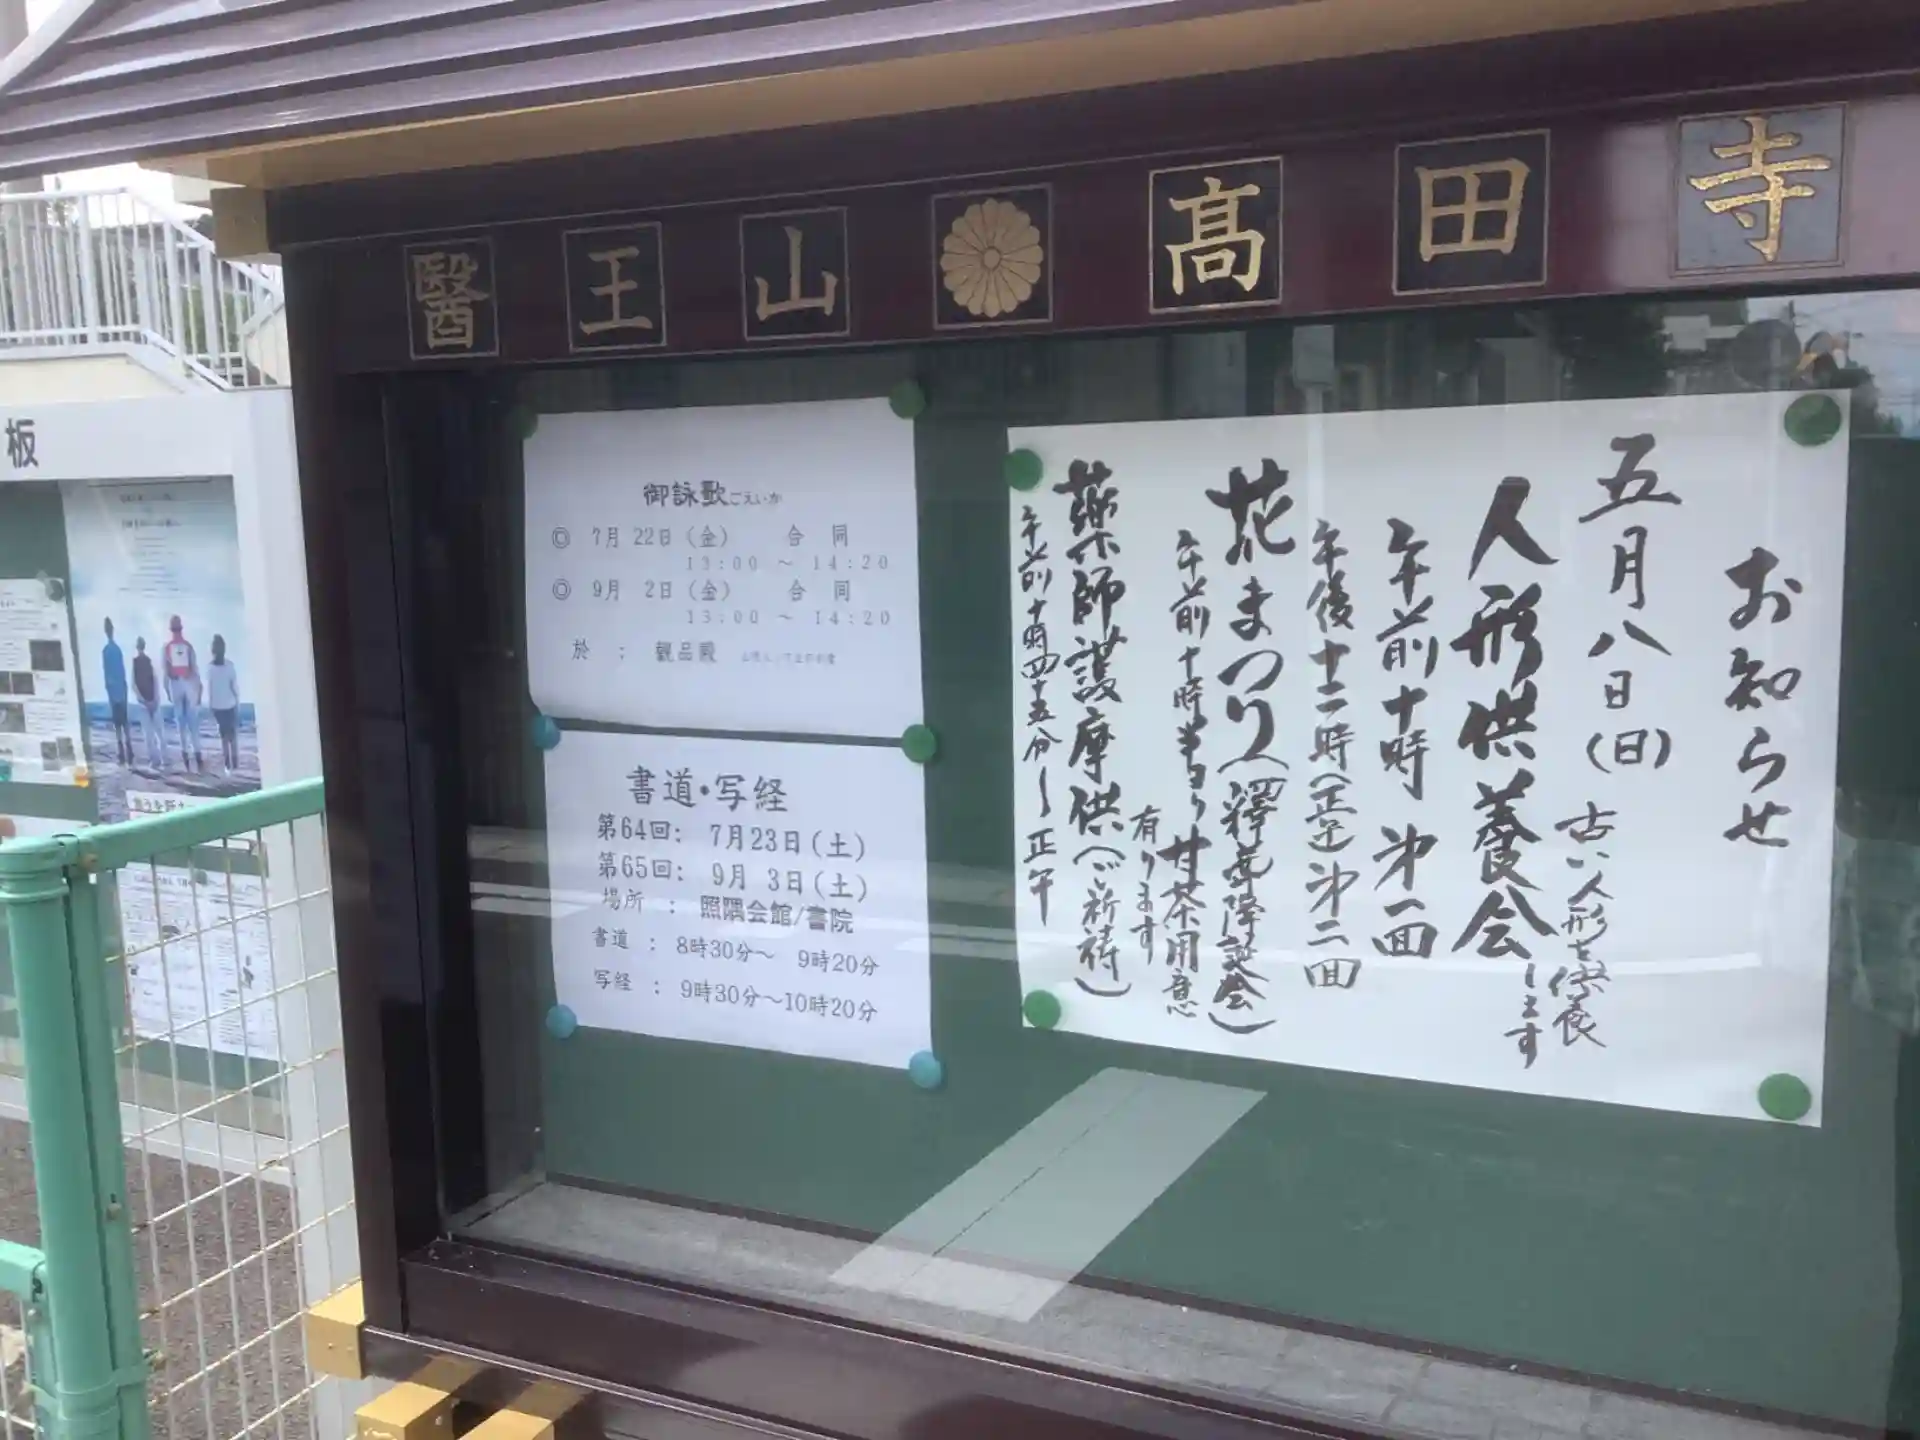 醫王山 高田寺
お知らせ
五月八日(日)
古い人形を供養
します
人形供養会
午前十時 第一回
午後十二時(正午)第二回
花まつり(釋尊降誕会)
午前十時半より甘茶用意
有ります
薬師護摩供(ご祈祷)
午前十時四十五分〜正午
御詠歌ごえいか
◎ 7月 22日(金) 合 同
13:00 ~ 14:20
◎ 9月 2日(金) 合 同
13:00 ~ 14:20
於 : 観品殿
書道・写経
第64回: 7月23日(土)
第65回: 9月 3日(土)
場所 : 照隅会館/書院
書道 : 8時30分~ 9時20分
写経 : 9時30分~10時20分
板